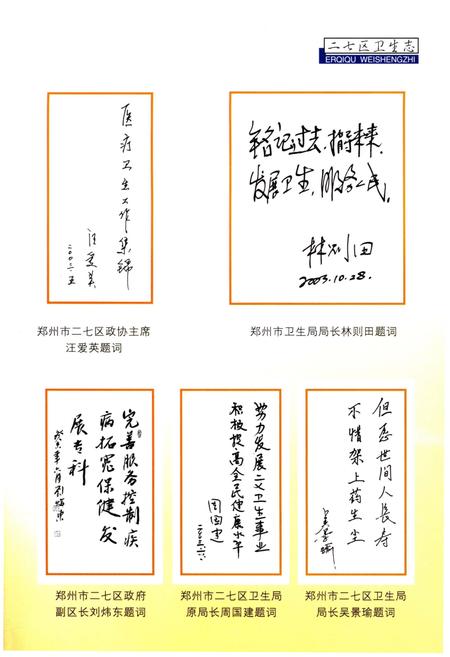 二七区卫生志
ERQIQU WEISHENGZHI
医疗卫生工作集锦
汪爱英
二00三·五
铭记过去，揣未来，
发展卫生，服务人民。
林则田
2003.10.28.
郑州市二七区政协主席
汪爱英题词
郑州市卫生局局长林则田题词
完善服务控制疾
病拓宽保健发
展专科
癸未年六月刘炜东
努力发展二七卫生事业
积极提高全民健康水平
周国建
二00三·六·
但愿世间人长寿
不惜架上药生尘
吴景瑜
郑州市二七区政府
副区长刘炜东题词
郑州市二七区卫生局
原局长周国建题词
郑州市二七区卫生局
局长吴景瑜题词